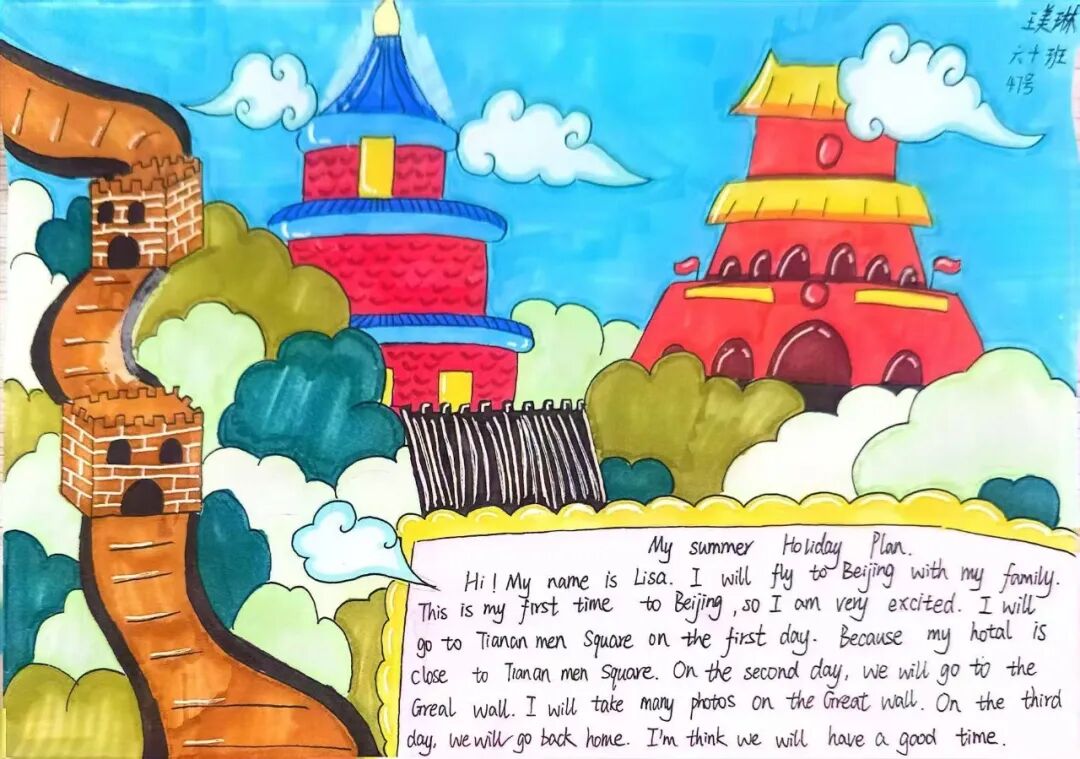 王美琳
六十班
47号
My summer Holiday Plan.
Hi! My name is Lisa. I will fly to Beijing with my family.
This is my first time to Beijing, so I am very excited. I will
go to Tianan men Square on the first day. Because my hotal is
close to Tianan men Square. On the second day, we will go to the
Greal wall. I will take many photos on the Great wall. On the third
day, we will go back home. I'm think we will have a good time.